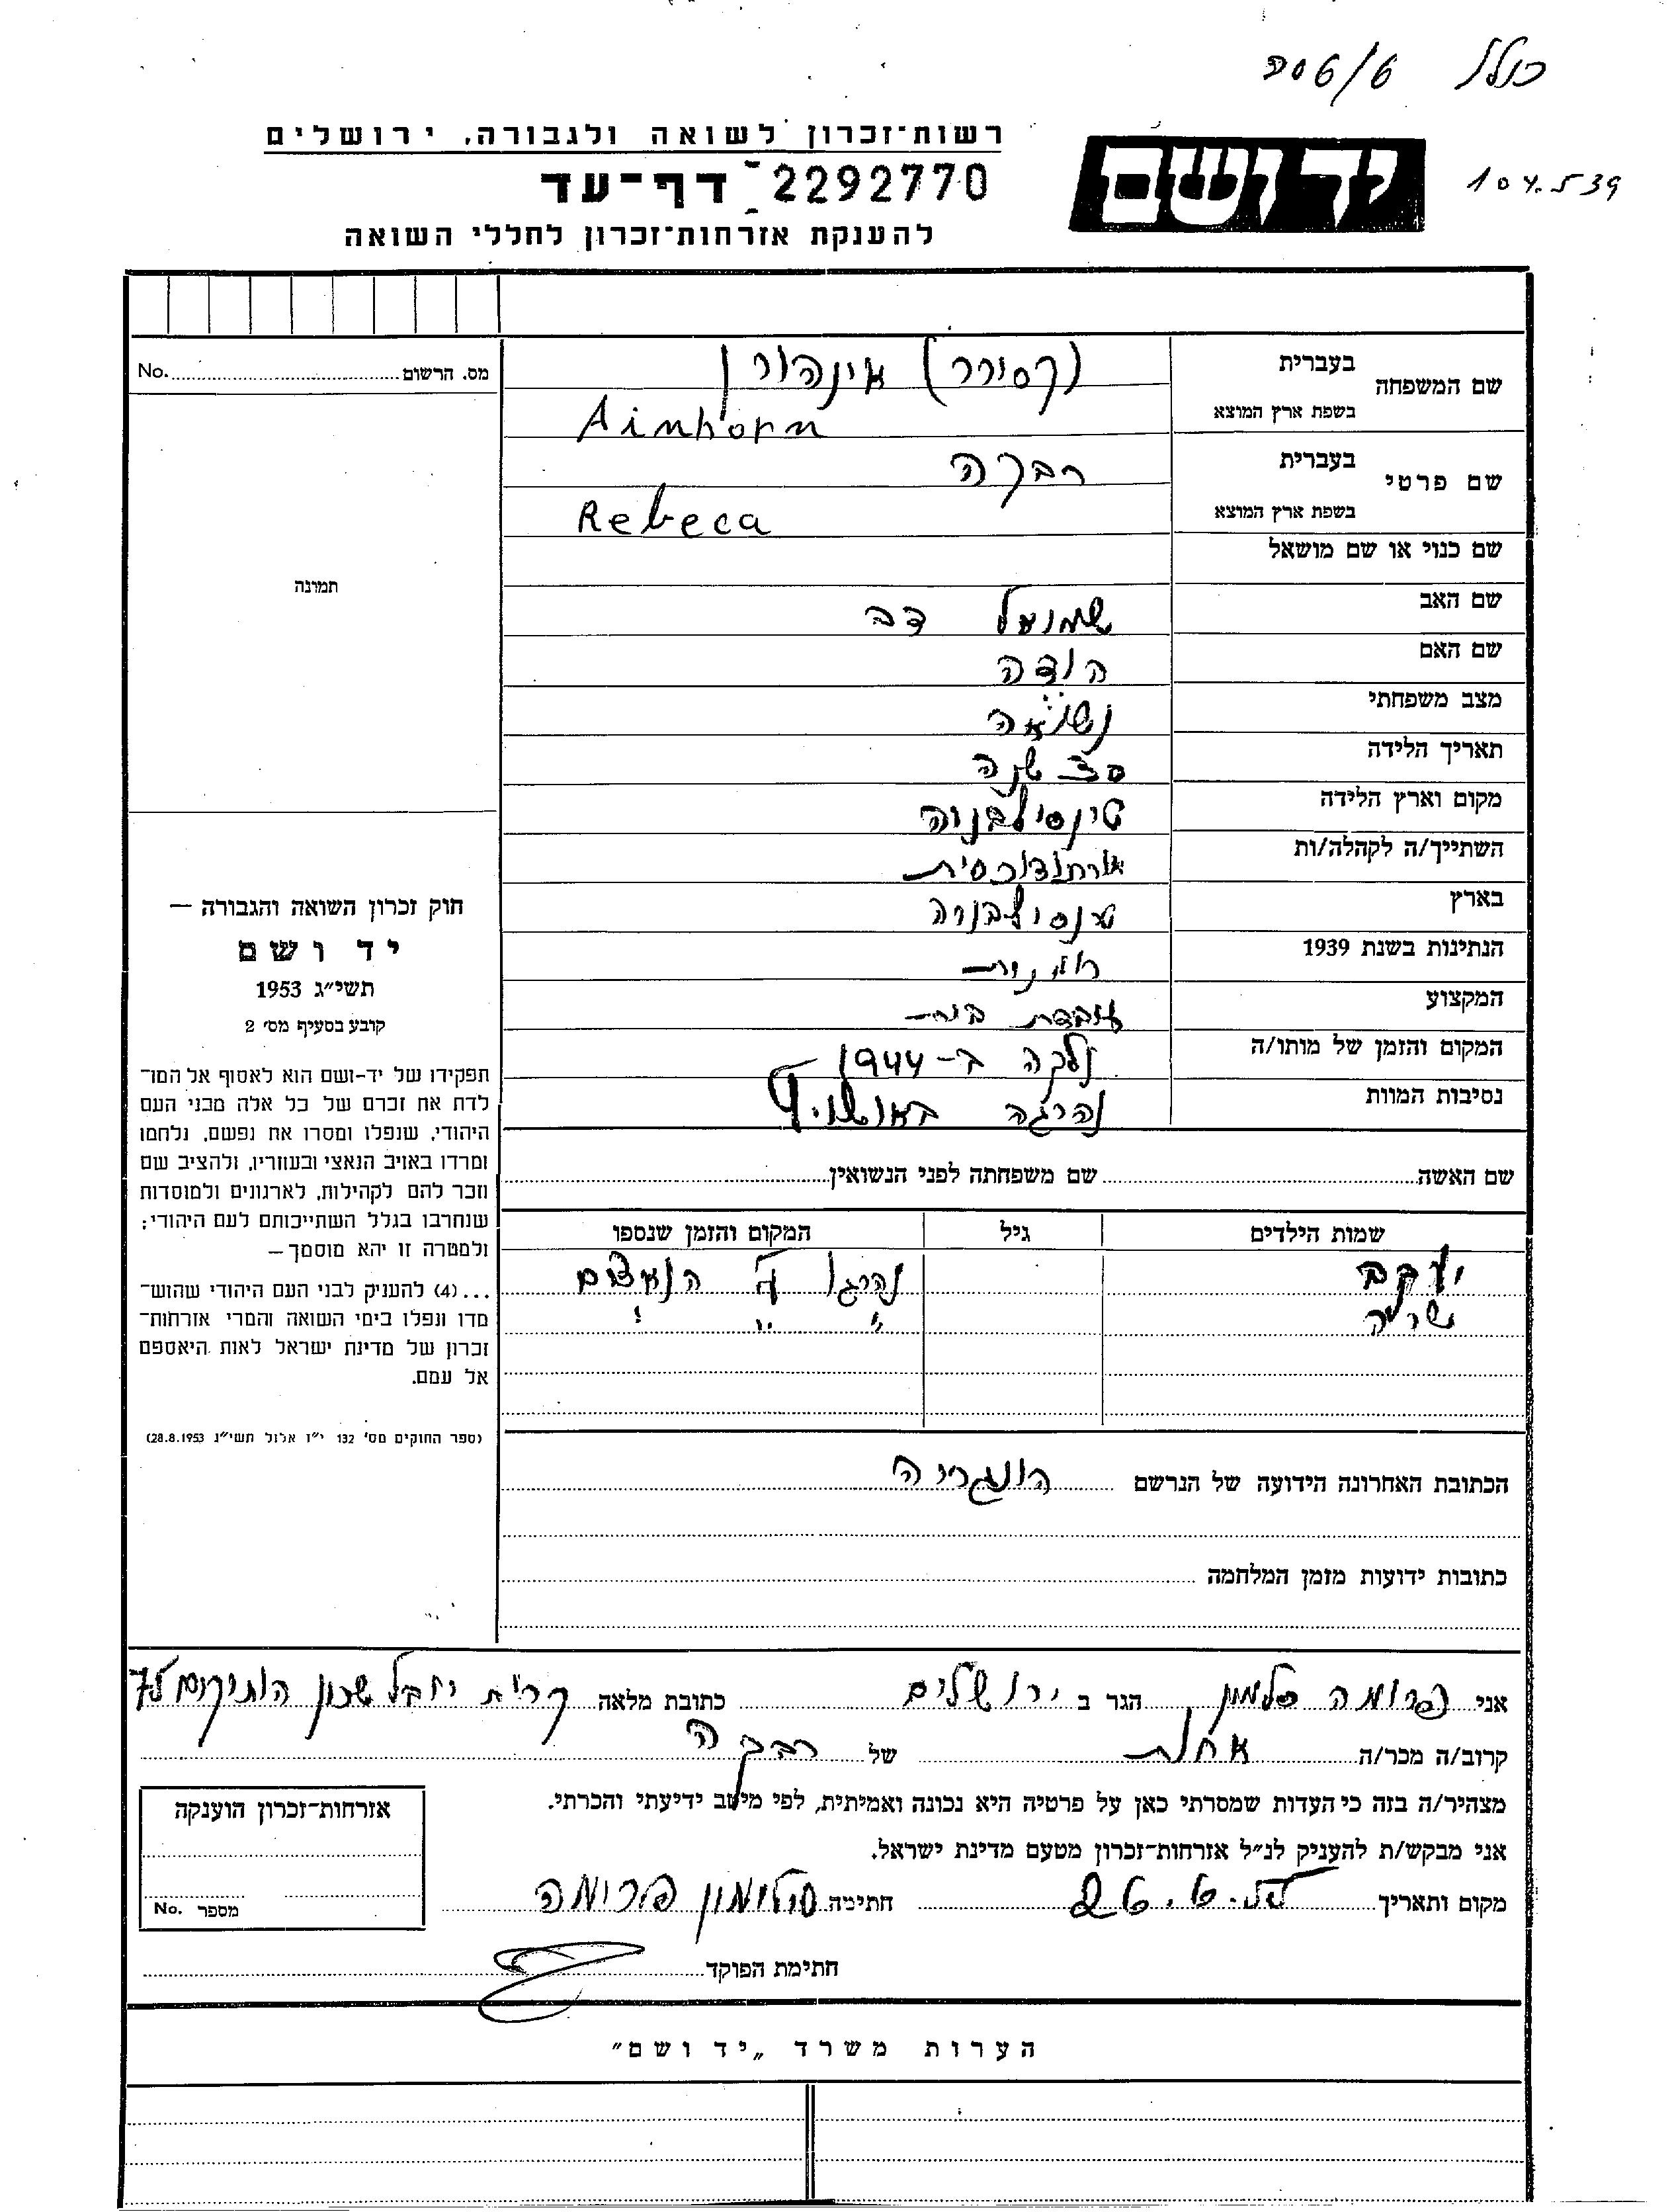 כולל
104.539
יד ושם
רשות־זכרון לשואה ולגבורה, ירושלים
דף־עד 2292770
להענקת אזרחות־זכרון לחללי השואה
מס. הרשום No.
תמונה
חוק זכרון השואה והגבורה —
יד ושם
תשי״ג 1953
קובע בסעיף מס׳ 2
תפקידו של יד-ושם הוא לאסוף אל המו־
לדת את זכרם של כל אלה מבני העם
היהודי, שנפלו ומסרו את נפשם, נלחמו
ומרדו באויב הנאצי ובעוזריו, ולהציב שם
וזכר להם לקהילות, לארגונים ולמוסדות
שנחרבו בגלל השתייכותם לעם היהודי;
ולמטרה זו יהא מוסמך —
...(4) להעניק לבני העם היהודי שהוש־
מדו ונפלו בימי השואה והמרי אזרחות־
זכרון של מדינת ישראל לאות היאספם
אל עמם.
(ספר החוקים מס׳ 132 י״ז אלול תשי״ג 28.8.1953)
שם המשפחה בעברית (קסורר) אינהורן
בשפת ארץ המוצא Ainhorn
שם פרטי בעברית רבקה
בשפת ארץ המוצא Rebeca
שם כנוי או שם מושאל
שם האב שמואל דב
שם האם הודה
מצב משפחתי נשואה
תאריך הלידה שנה
מקום וארץ הלידה טינסילבניה
השתייך/ה לקהלה/ות אורתודוכסית
בארץ טנסילבניה
הנתינות בשנת 1939
המקצוע עובדת בית
המקום והזמן של מותו/ה נלקה ב-1944
נסיבות המוות נהרגה באושויץ
שם האשה שם משפחתה לפני הנשואין
שמות הילדים גיל המקום והזמן שנספו
יעקב נהרגו ע״י הנאצים
שרה ״ ״ ״
הכתובת האחרונה הידועה של הנרשם הונגריה
כתובות ידועות מזמן המלחמה
אני פרומה סלומון הגר ב ירושלים כתובת מלאה קרית יובל שכון הותיקים 75
קרוב/ה מכר/ה אחות של רבקה
מצהיר/ה בזה כי העדות שמסרתי כאן על פרטיה היא נכונה ואמיתית, לפי מיטב ידיעתי והכרתי.
אני מבקש/ת להעניק לנ״ל אזרחות־זכרון מטעם מדינת ישראל.
מקום ותאריך חתימה סלומון פרומה
חתימת הפוקד
אזרחות־זכרון הוענקה
מספר No.
הערות משרד „יד ושם״